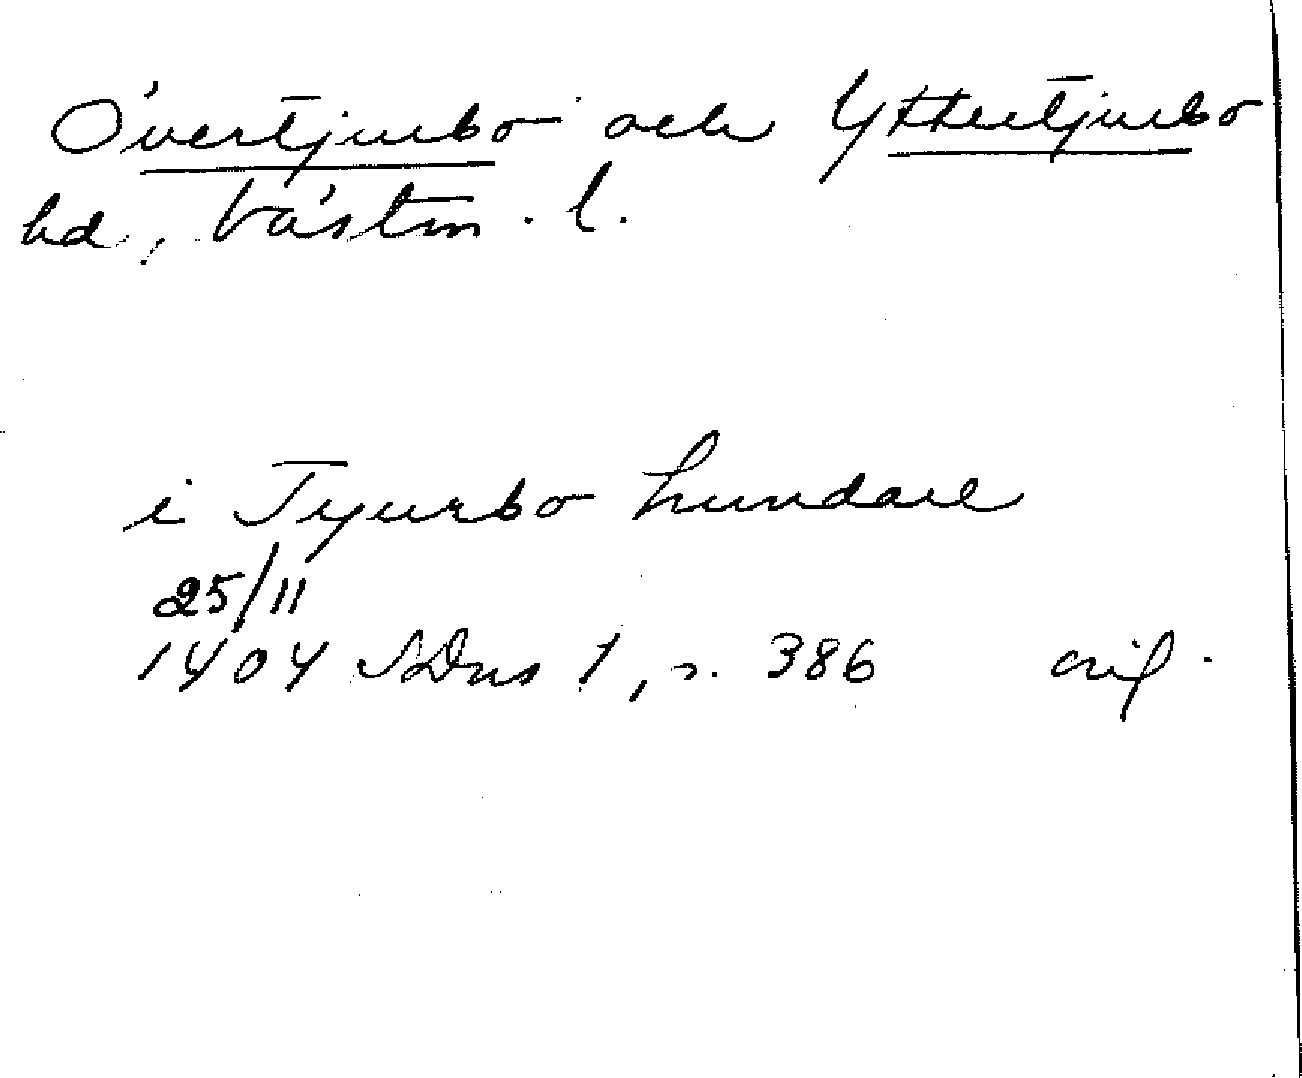 Övertjurbo och Yttertjurbo
hd, Västm. l.
i Tyurbo hundare
25/11
1404 SDns 1, s. 386 orig.